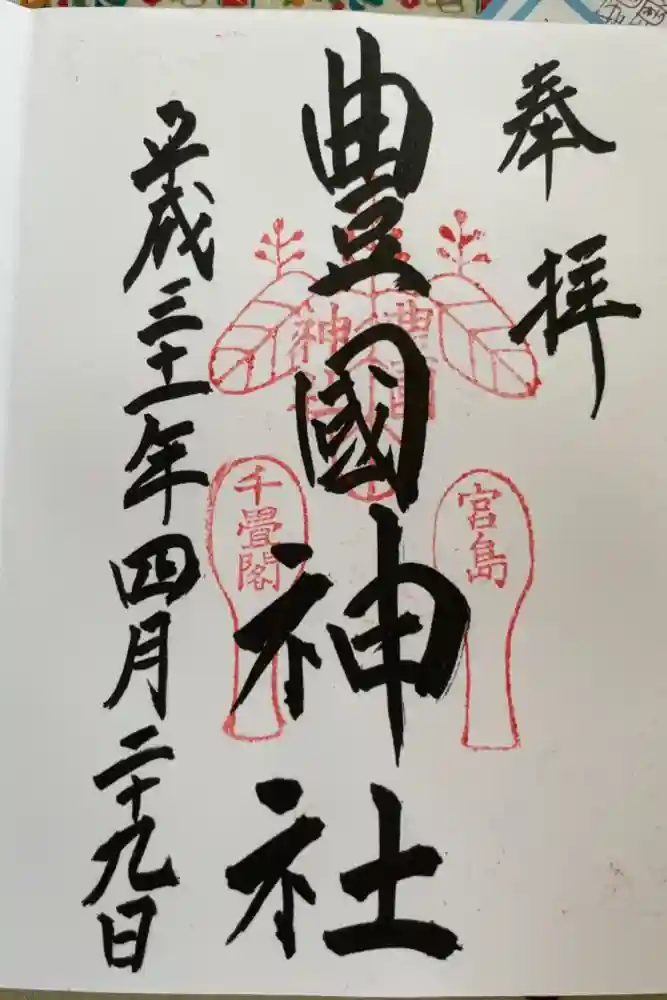 奉拝
豊國神社
平成三十一年四月二十九日
宮島
千畳閣
豊国
神社